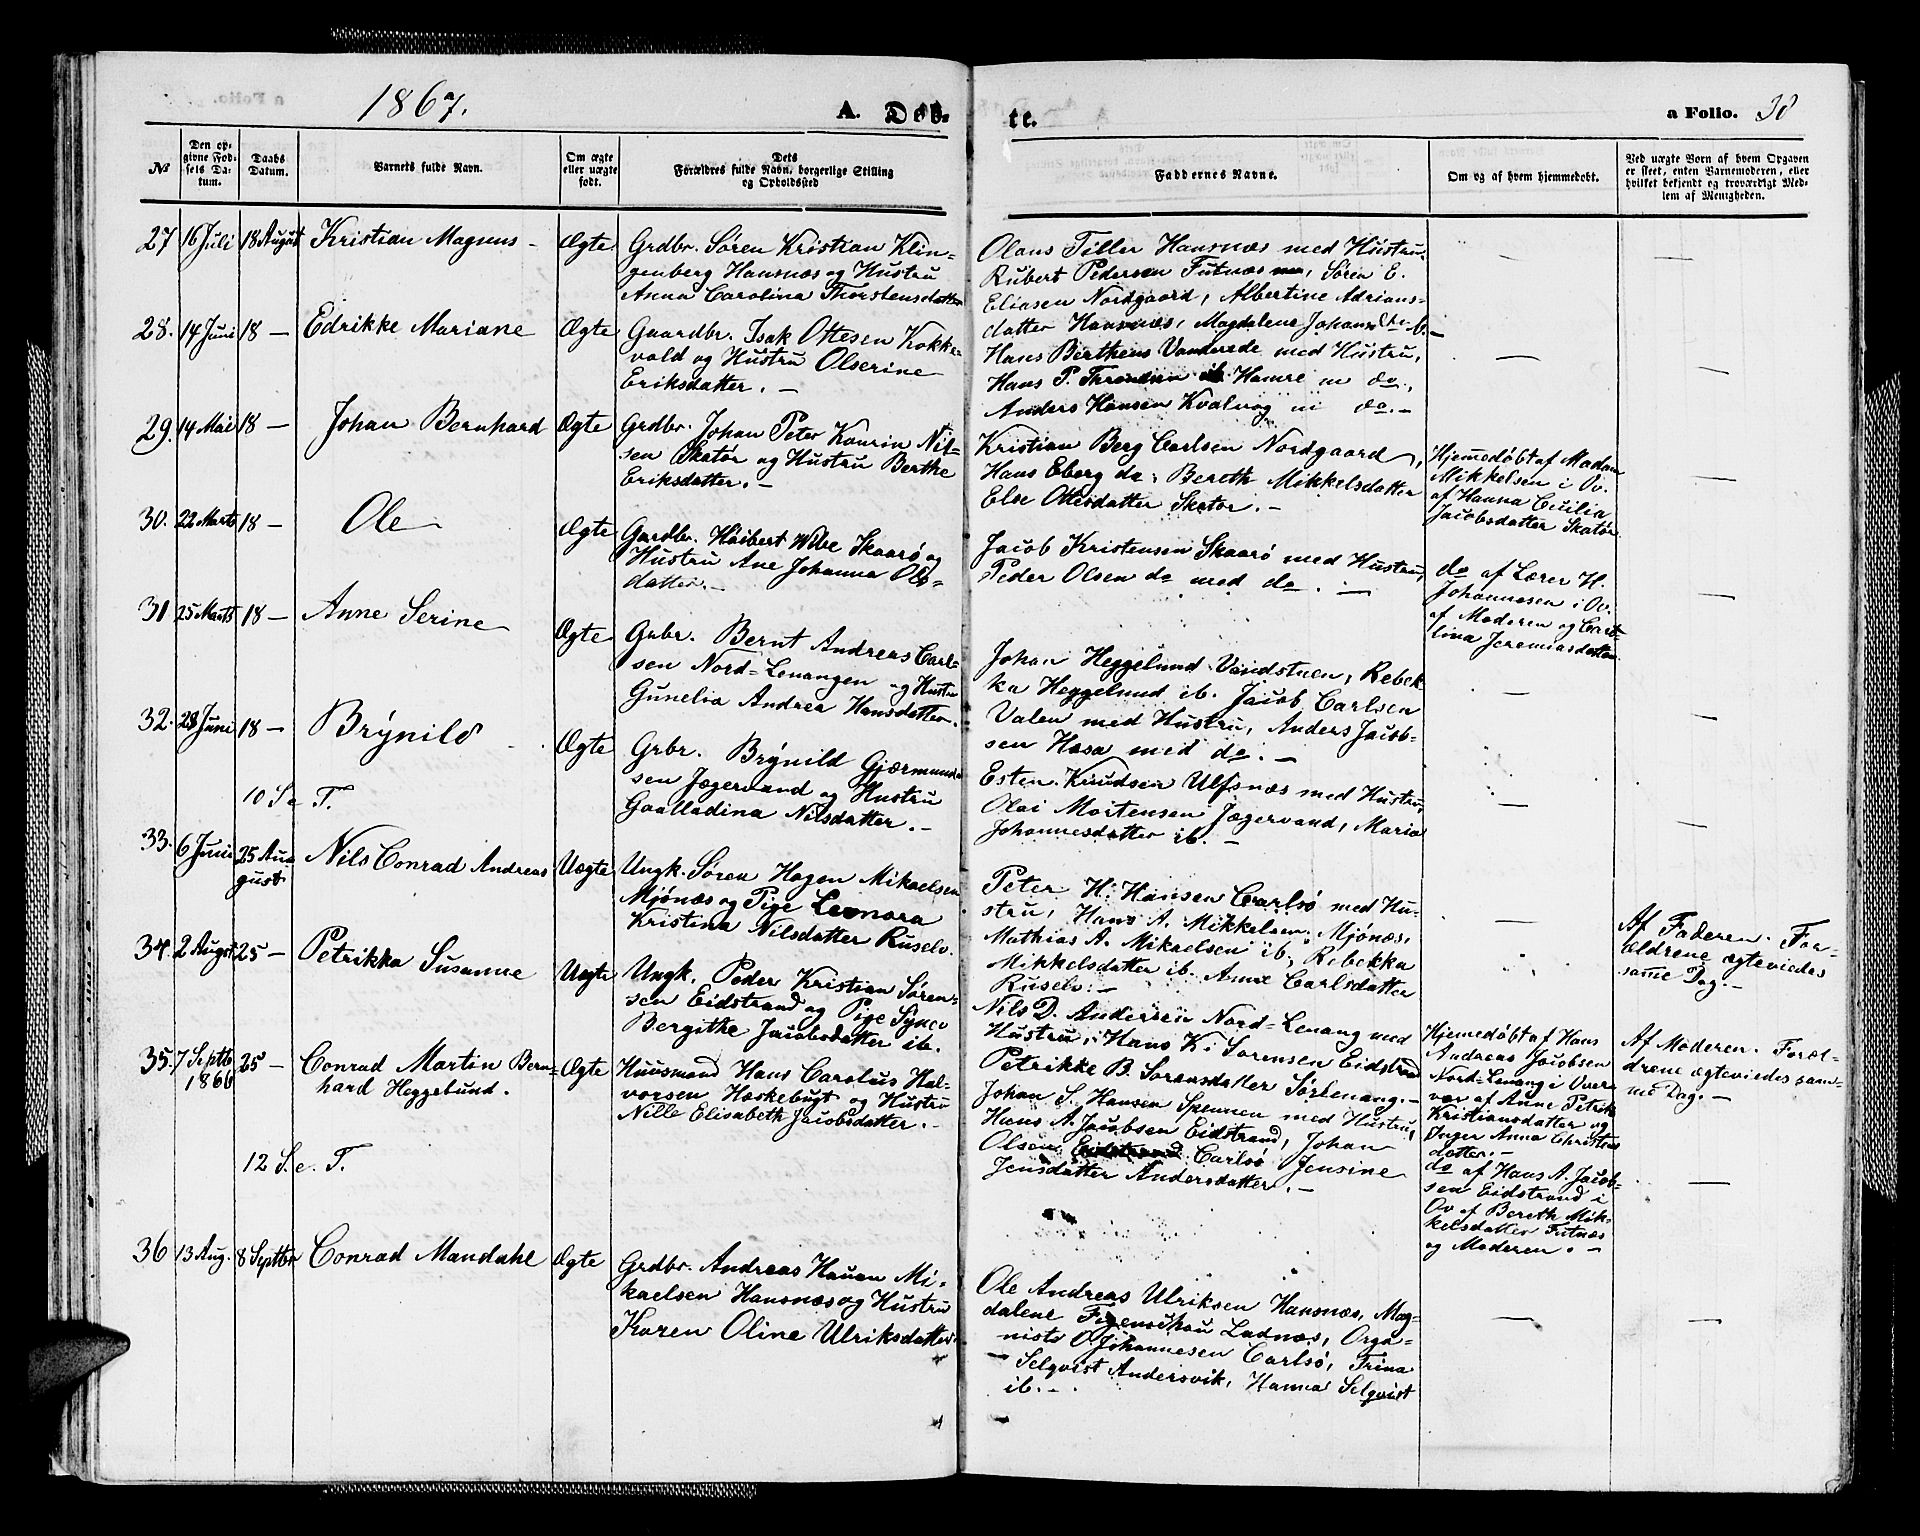 1867.
A. Døb-
te.
a Folio. 38
№
Den op-
givne Fød-
sels Da-
tum.
Daabs
Datum.
Barnets fulde Navn.
Om ægte
eller uægte
født.
Dets
Forældres fulde Navn, borgerlige Stilling
og Opholdssted
Faddernes Navne.
Om og af hvem hjemmedøbt.
Ved uægte Børn af hvem Opgaven
er skeet, enten Barnemoderen, eller
hvilket bekjendt og troværdigt Med-
lem af Menigheden.
27 16 Juli 18 August Kristian Magnus - Ægte
Grdbr. Søren Kristian Klin-
genberg Hansnæs og Hustru
Anna Carolina Thorstensdatter
Olaus Tiller Hansnæs med Hustru
Rubert Pedersen Futnæs, Søren E.
Eliasen Nordgaard, Albertine Adrians-
datter Hansnæs, Magdalene Johansdtr ib. -
28. 14 Juni 18 - Edrikke Mariane Ægte
Gaardbr. Isak Ottesen Kokke-
vold og Hustru Olserine
Eriksdatter. -
Hans Berthens Vanderede med Hustru,
Hans P. Thronsen Hamre m do,
Anders Hansen Kvalvog m do. -
29. 14 Mai 18 - Johan Bernhard Ægte
Grdbr. Johan Peter Konrin Nil-
sen Skatør og Hustru Berthe
Eriksdatter. -
Kristian Berg Carlsen Nordgaard,
Hans Eberg do, Bereth Mikkelsdatter
Else Ottesdatter Skatør. -
Hjemmedøbt af Madam
Mikkelsen i Ov.
af Hanna Cecilia
Jacobsdatter Skatør.
30. 22 Marts 18 - Ole Ægte
Gardbr. Haibert Wibe Skaarø og
Hustru Ane Johanna Ols-
datter. -
Jacob Kristensen Skaarø med Hustru,
Peder Olsen do med do. -
do af Lærer H.
Johannesen i Ov.
af Moderen og Caro-
lina Jeremiasdatter.
31 25 Marts 18 - Anne Serine Ægte
Grbr. Bernt Andreas Carl-
sen Nord-Lenangen og Hustru
Gunelia Andrea Hansdatter.
Johan Heggelund Vandstuen, Rebek-
ka Heggelund ib. Jacob Carlsen
Valen med Hustru, Anders Jacob-
sen Hasa med do. -
32. 28 Juni 18 - Brýnild Ægte
Grbr. Brýnild Gjærmund-
sen Jægervand og Hustru
Gaalladina Nilsdatter. -
Esten Knudsen Ulfsnæs med Hustru,
Olai Mortensen Jægervand, Maria
Johannesdatter ib. -
10 S. e. T.
33. 6 Juni 25 Au-
gust Nils Conrad Andreas Uægte
Ungk. Søren Hagen Mikaelsen
Mjønæs og Pige Leonora
Kristina Nilsdatter Ruselv.
Peter H. Hansen Carlsø med Hu-
stru, Hans A. Mikkelsen Mjønæs,
Mathias A. Mikaelsen ib, Rebekka
Mikkelsdatter ib. Anne Carlsdatter
Ruselv. -
Af Faderen. For-
ældrene ægteviedes
samme Dag. -
34. 2 Augst 25 - Petrikka Susanne Uægte
Ungk. Peder Kristian Søren-
sen Eidstrand og Pige Synev
Bergithe Jacobsdatter ib.
Nils D. Andersen Nord-Lenang med
Hustru, Hans K. Sorensen Eidstrand
Petrikke B. Sorensdatter Sørlenang. -
Hjemmedøbt af Hans
Andreas Jacobsen
Nord-Lenang i Over-
vær af Anne Petrik
Kristiansdatter og
Inger Anna Christens
datter. -
Af Moderen. Foræl-
drene ægteviedes sam-
me Dag. -
35. 7 Septb
1866 25 - Conrad Martin Bern-
hard Heggelund. Ægte
Huusmand Hans Carolus Hal-
vorsen Haskebugt og Hustru
Nille Elisabeth Jacobsdatter. -
Johan S. Hansen Spennen med Hustru,
Hans A. Jacobsen Eidstrand, Johan
Olsen Carlsø Jensine
Jensdatter Andersdatter. -
do af Hans A. Jacob-
sen Eidstrand i
Ov af Bereth Mik-
kelsdatter Futnæs
og Moderen. -
12 S. e. T.
36 13 Aug. 8 Septbr Conrad Mandahl Ægte
Grdbr. Andreas Hauan Mi-
kaelsen Hansnæs og Hustru
Karen Oline Ulriksdatter.
Ole Andreas Ulriksen Hansnæs, Mag-
dalene Figenschau Ladnæs, Orga-
nist O Johannesen Carlsø, Trina
Selqvist Andersvik, Hanna Selqvist
ib. -